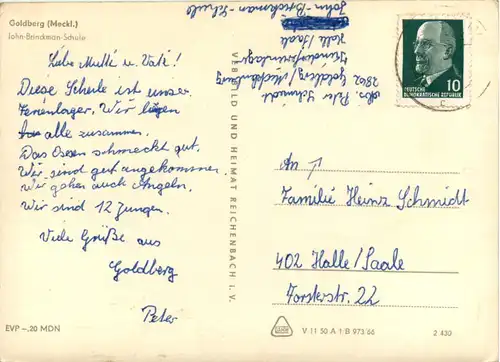 Goldberg (Meckl.)
John-Brinckman-Schule
Liebe Mutti u. Vati!
Diese Schule ist unser
Ferienlager. Wir liegen
alle zusammen.
Das Essen schmeckt gut.
Wir sind gut angekommen.
Wir gehen auch Angeln.
Wir sind 12 Jungen.
Viele Grüße aus
Goldberg
Peter
EVP -.20 MDN
VEB BILD UND HEIMAT REICHENBACH I. V.
Abs. Peter Schmidt
2862 Goldberg/Mecklenburg
Halle/Saale
John-Brinkman-Schule
10
DEUTSCHE
DEMOKRATISCHE REPUBLIK
An
Familie Heinz Schmidt
402 Halle/Saale
Forsterstr. 22
V 11 50 A 1/B 973/66
2 430